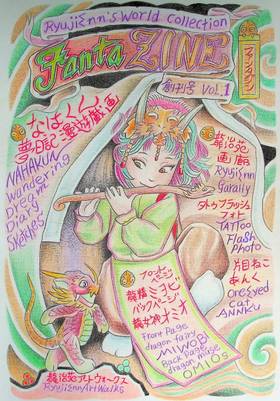 Ryujiεnn's World Collection
Fanta ZINE
ファンタジン
創刊号 Vol.1
なはくん
夢日記漫遊戯画
NAHAKUN
Wandering
Dream
Diary
Sketches
龍治苑
画廊
Ryujiεnn
Garally
タトゥフラッシュ
フォト
TATToo
Flash
Photo
片目ねこ
あんく
Oreεyed
cat
ANNKu
プロローグページ
龍精ミヨビ
バックページ
龍女神オミオ
Front Page
dragon fairy
MIWOBi
Back Page
dragon muse
OMIOs
龍治苑アートウォークス
RyujiεnnArtWalks